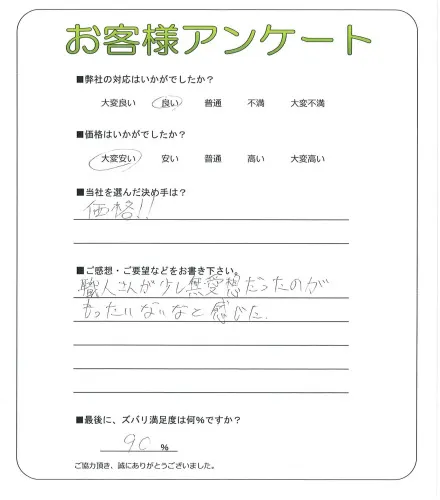 お客様アンケート
■弊社の対応はいかがでしたか？
大変良い 良い 普通 不満 大変不満
■価格はいかがでしたか？
大変安い 安い 普通 高い 大変高い
■当社を選んだ決め手は？
価格!!
■ご感想・ご要望などをお書き下さい。
職人さんが少し無愛想だったのが
もったいないなと感じた.
■最後に、ズバリ満足度は何%ですか？
90 %
ご協力頂き、誠にありがとうございました。